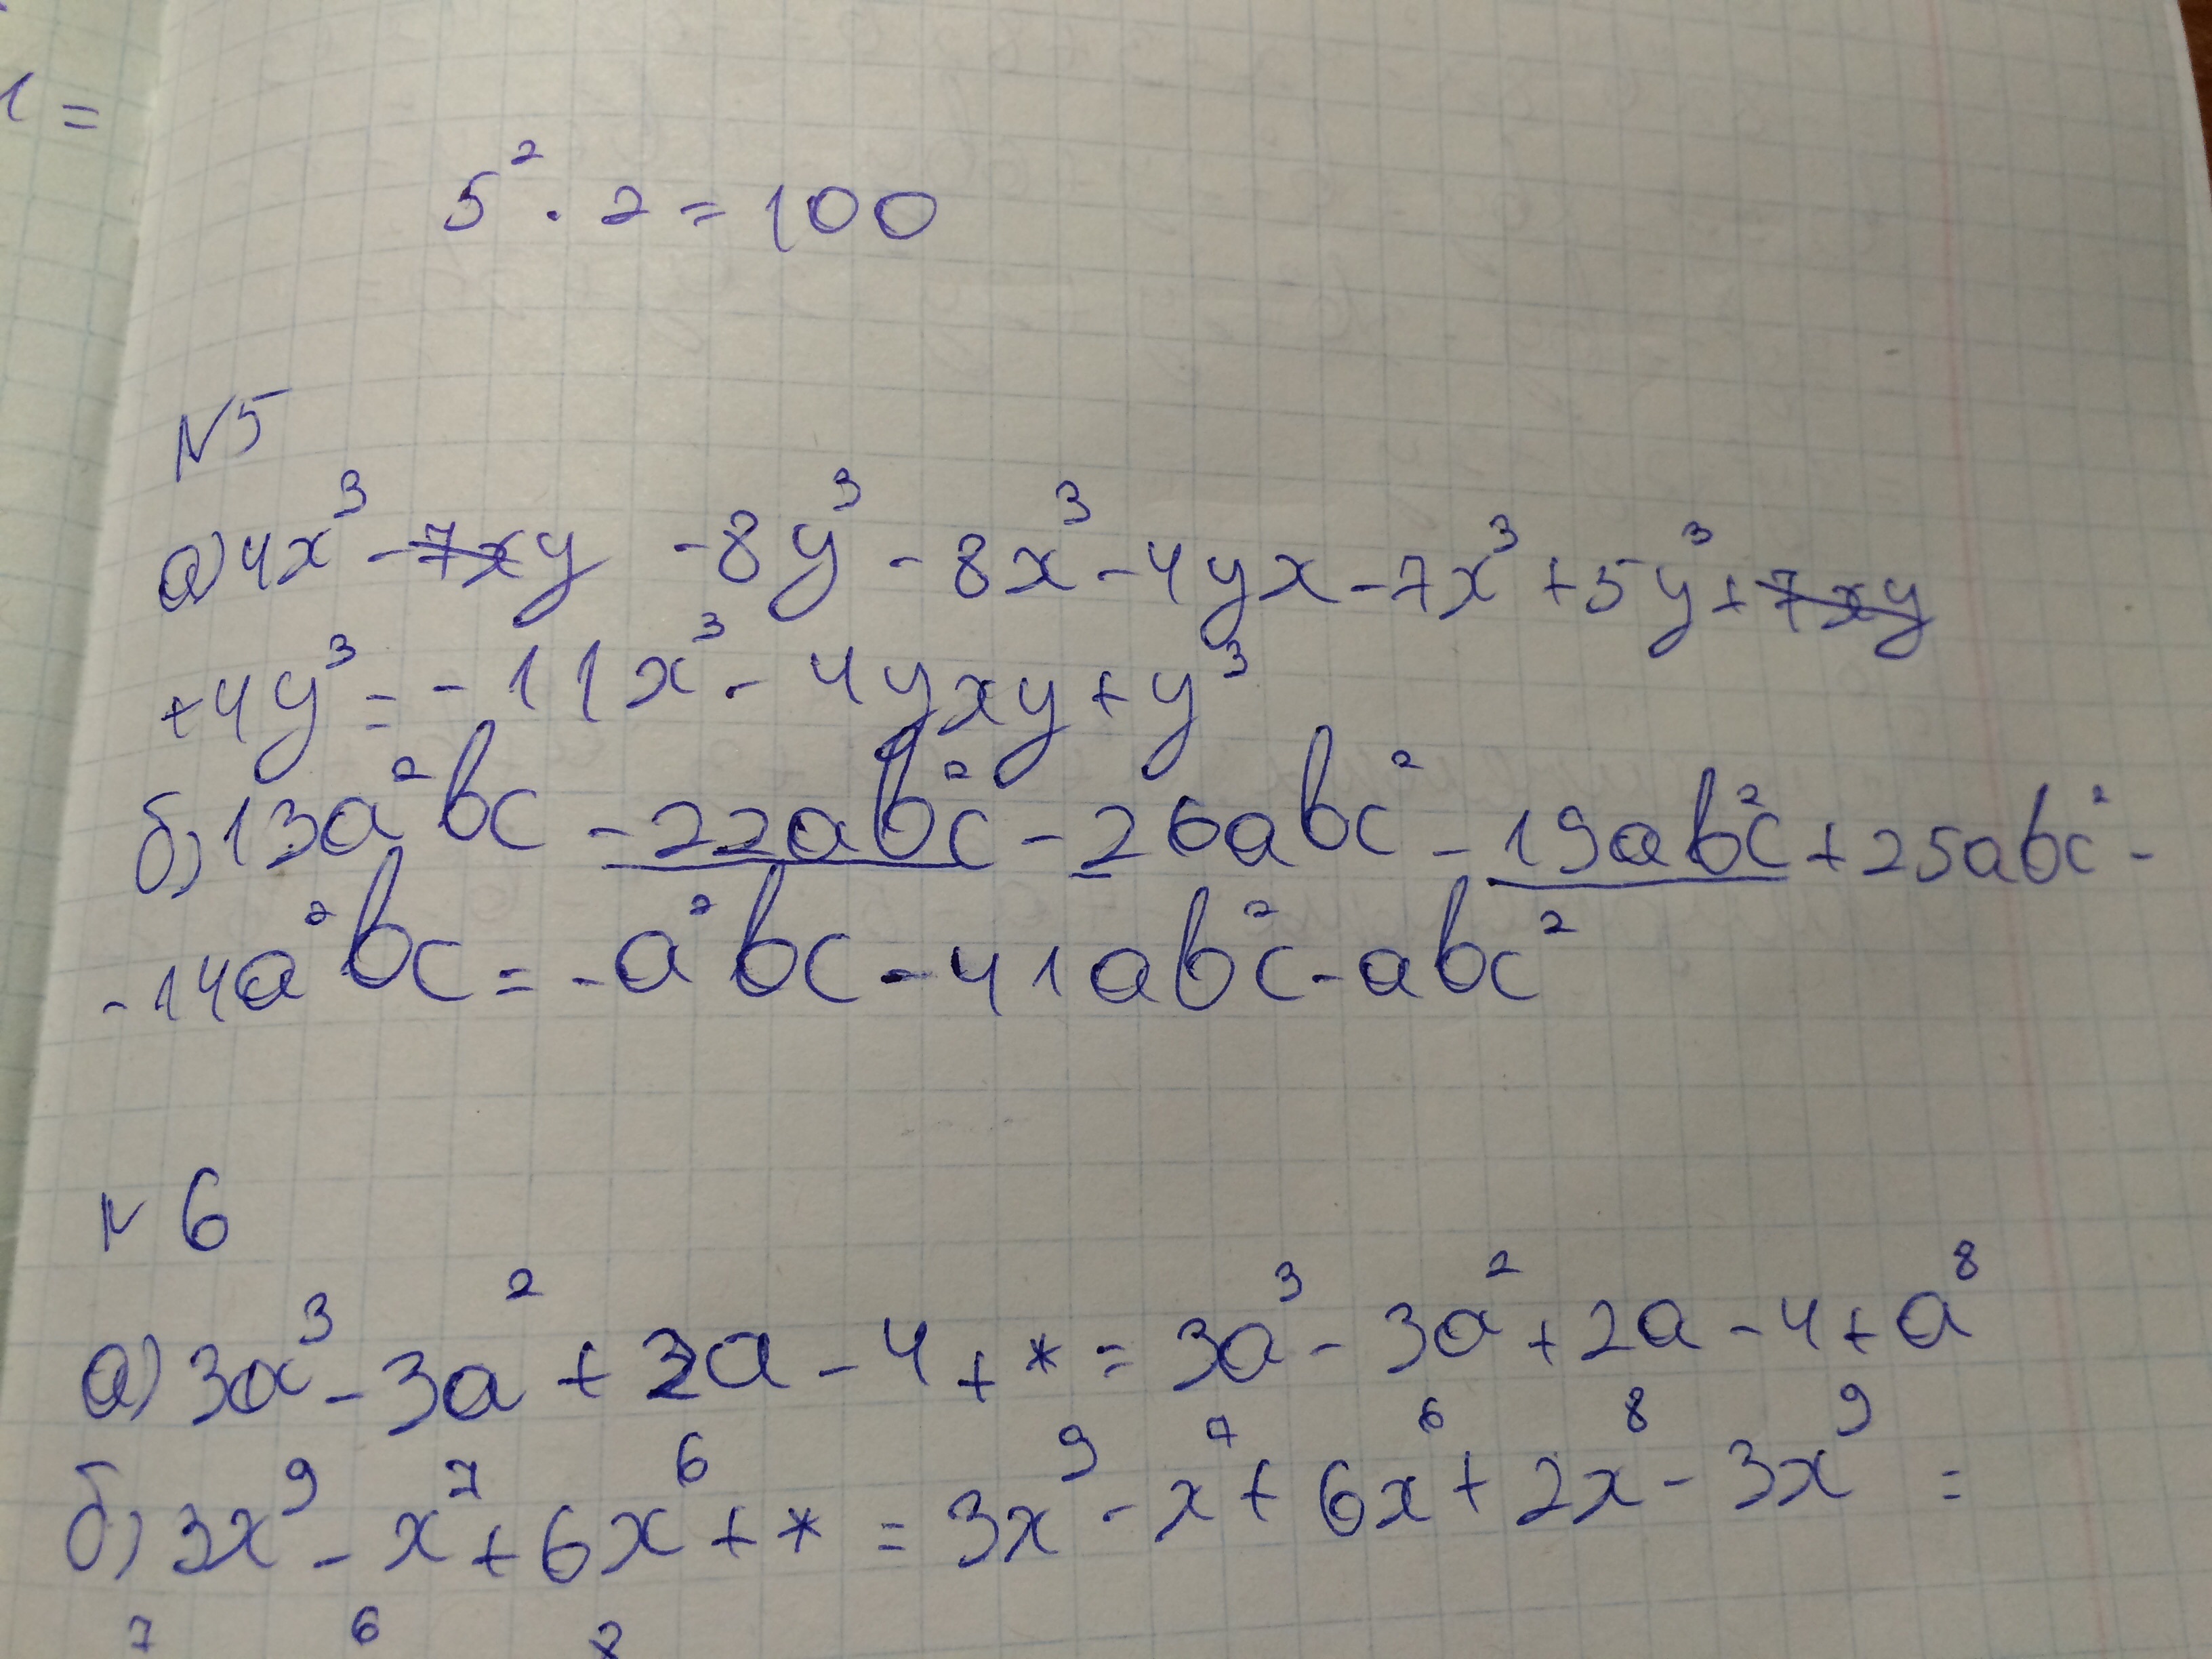 1 =
5² · 2 = 100
N5
а) 4x³ - 7xy - 8y³ - 8x³ - 4yx - 7x³ + 5y³ + 7xy
+ 4y³ = - 11x³ - 4yxy + y³
б) 13a²bc - 22ab²c - 26abc² - 19ab²c + 25abc² -
- 14a²bc = - a²bc - 41ab²c - abc²
N 6
а) 3a³ - 3a² + 2a - 4 + * = 3a³ - 3a² + 2a - 4 + a⁸
б) 3x⁹ - x⁷ + 6x⁶ + * = 3x⁹ - x⁷ + 6x⁶ + 2x⁸ - 3x⁹ =
7 6 8